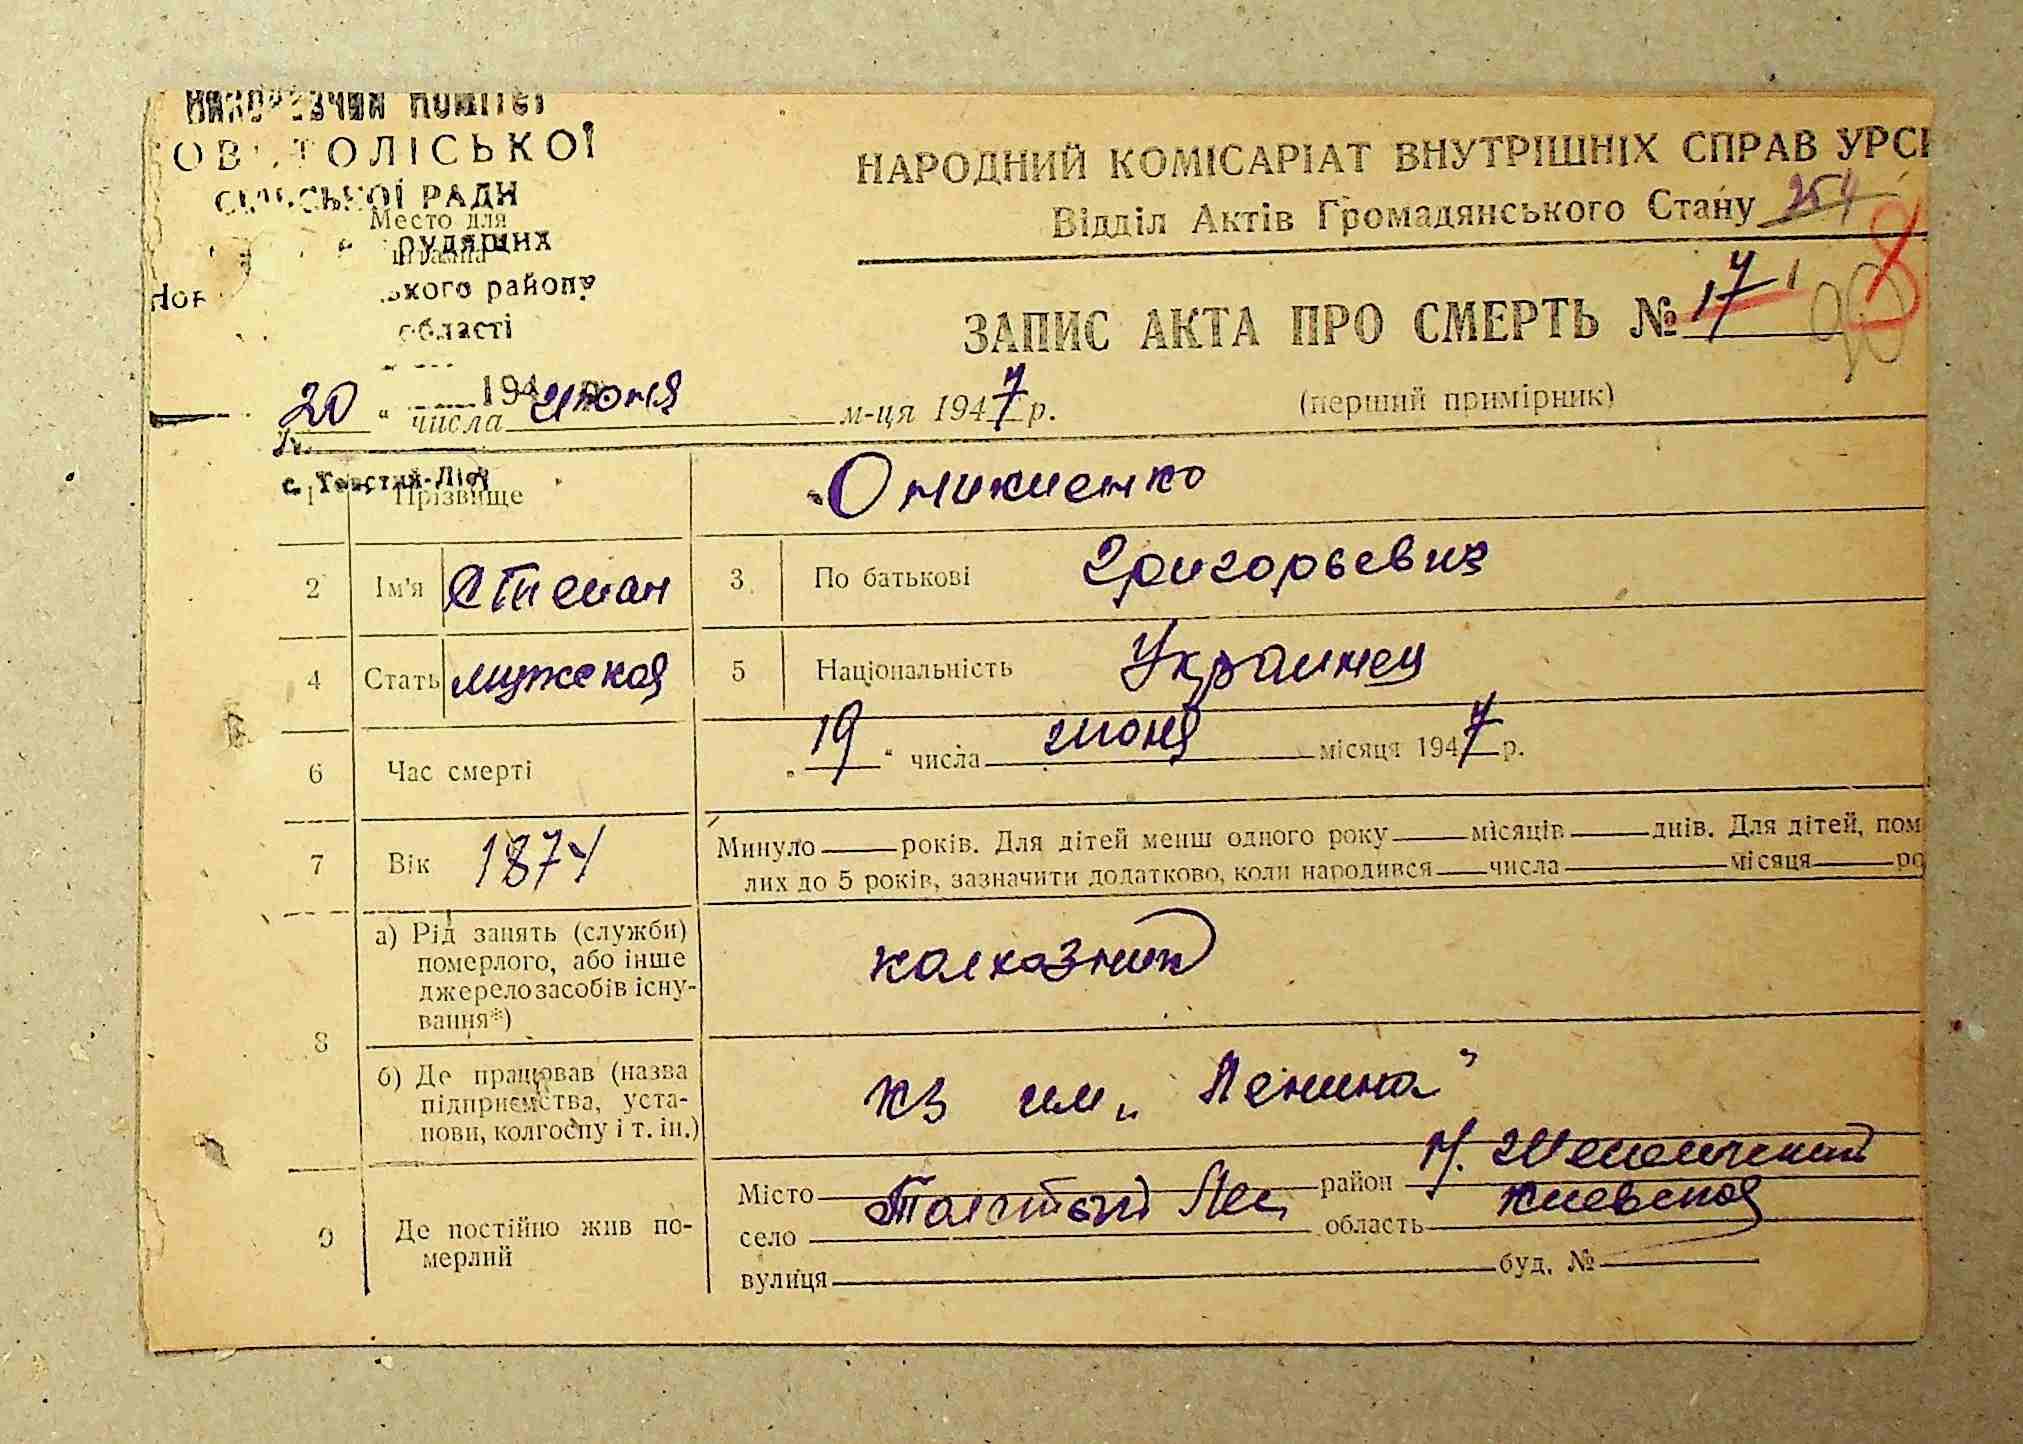 ВИКОНАВЧИЙ КОМІТЕТ
ОВ ТОЛІСЬКОЇ
СІЛЬСЬКОЇ РАДИ
Место для
штампа
трудящих
Нов ського району
області
194 р.
с. Товстий-Ліс
НАРОДНИЙ КОМІСАРІАТ ВНУТРІШНІХ СПРАВ УРСР
Відділ Актів Громадянського Стану 254
ЗАПИС АКТА ПРО СМЕРТЬ № 17
(перший примірник)
20 " числа июня м-ця 1947 р.
1 Прізвище Оникиенко
2 Ім'я Степан 3 По батькові Григорьевич
4 Стать мужская 5 Національність Украинец
6 Час смерті „ 19 " числа июня місяця 1947 р.
7 Вік 1874 Минуло років. Для дітей менш одного року місяців днів. Для дітей, пом
лих до 5 років, зазначити додатково, коли народився числа місяця ро
8 а) Рід занять (служби)
померлого, або інше
джерело засобів існу-
вання*)
колхозник
б) Де працював (назва
підприємства, уста-
нови, колгоспу і т. ін.)
кз им „Ленина"
9 Де постійно жив по-
мерлий
Місто район Н. Шепеличский
село Толстый Лес область Киевская
вулиця буд. №